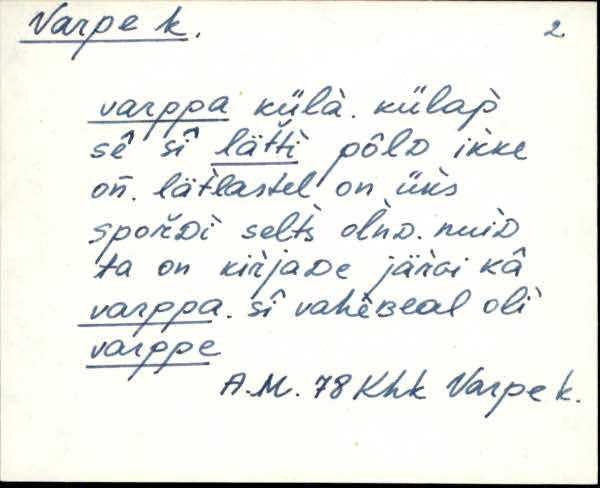 Varpe k.
2
varppa külà. külap̀
sê sî lät̆ti pôlD ikke
on̄. lät̀lastel on üks
spořDi selt̀s olǹD. nuiD
ta on kiřjaDe järvi kâ
varppa. sî vahêBeal olì
varppe
A.M. 78 Khk Varpe k.